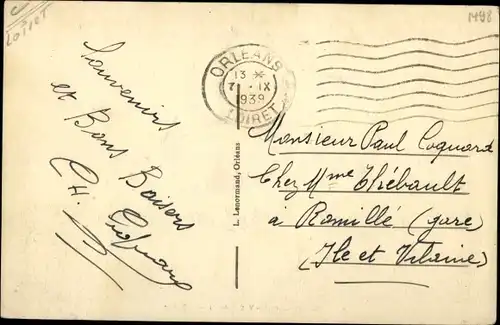 Loiret
1498
ORLEANS
13 *
7 - IX
1939
LOIRET
Souvenirs
et Bons Baisers
CH. Coquard
L. Lenormand, Orléans
Monsieur Paul Coquard
Chez Mme Thébault
à Romillé (gare)
(Ile et Vilaine)